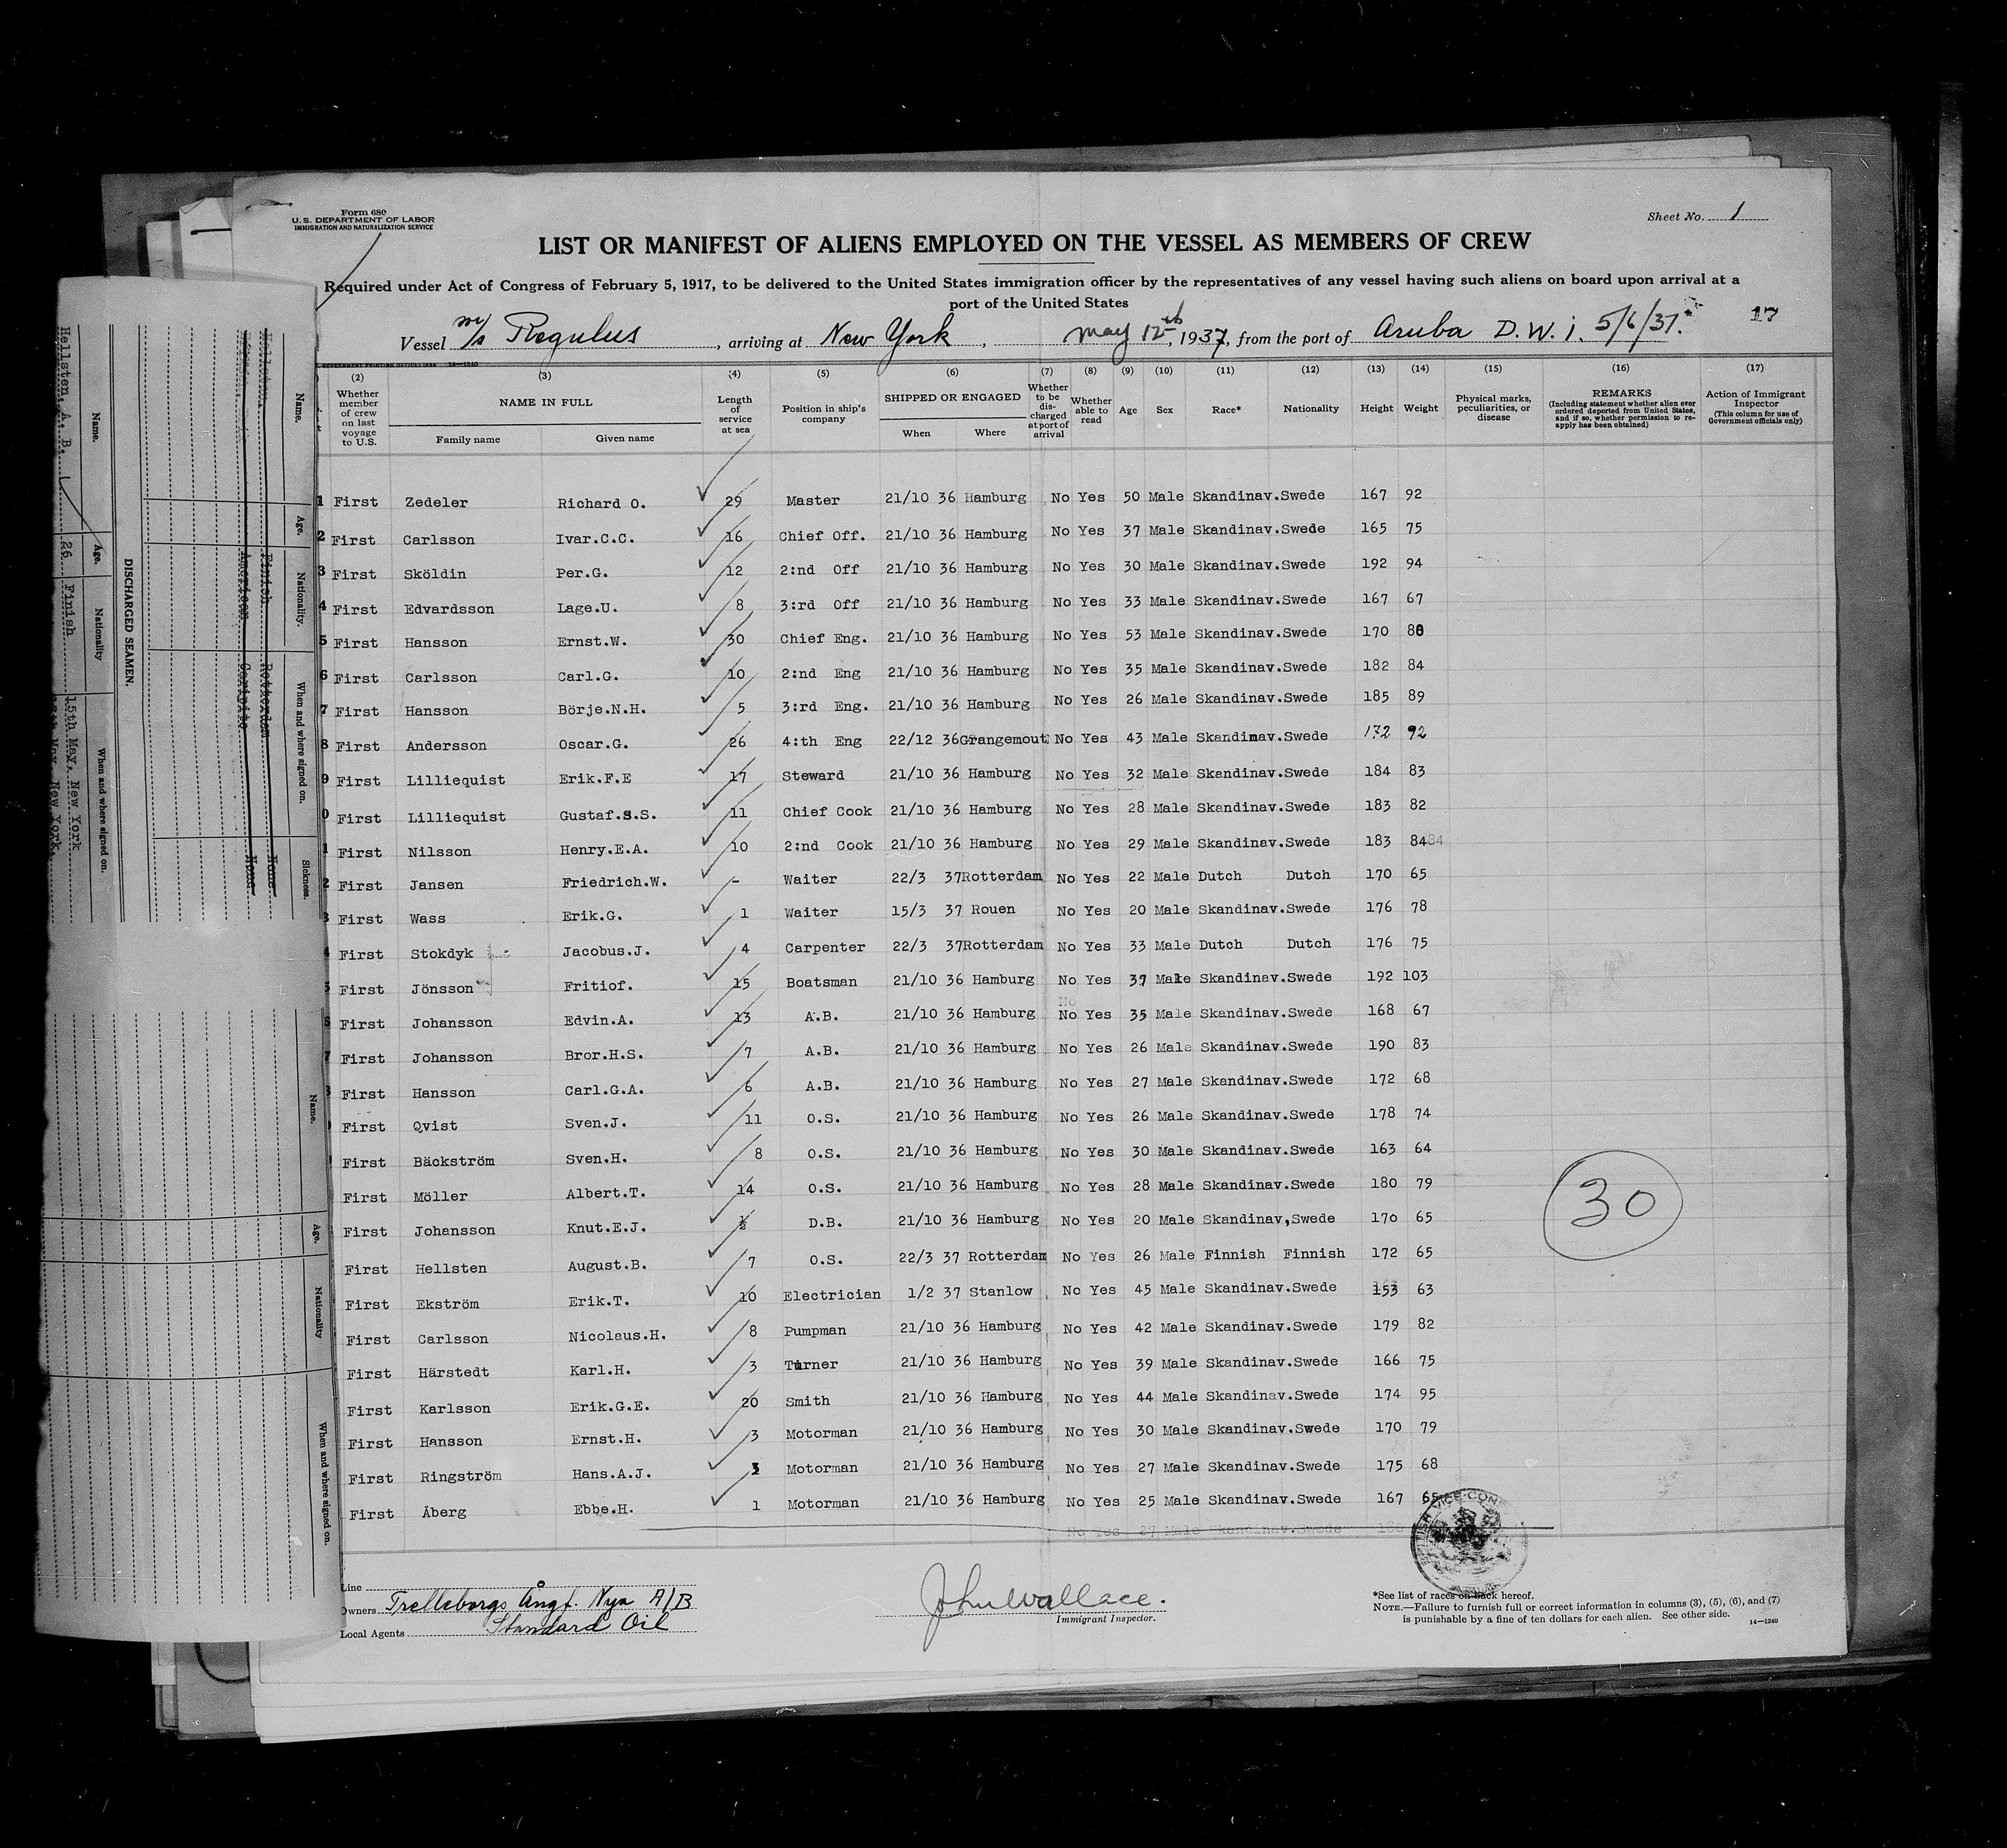 Form 680
U.S. DEPARTMENT OF LABOR
IMMIGRATION AND NATURALIZATION SERVICE
Sheet No. 1
LIST OR MANIFEST OF ALIENS EMPLOYED ON THE VESSEL AS MEMBERS OF CREW
Required under Act of Congress of February 5, 1917, to be delivered to the United States immigration officer by the representatives of any vessel having such aliens on board upon arrival at a
port of the United States
17
Vessel m/s Regulus, arriving at New York, May 12th, 1937, from the port of Aruba D.W.i. 5/6/37.
(2) (3) (4) (5) (6) (7) (8) (9) (10) (11) (12) (13) (14) (15) (16) (17)
Whether member of crew on last voyage to U.S. NAME IN FULL Family name Given name Length of service at sea Position in ship's company SHIPPED OR ENGAGED When Where Whether to be discharged at port of arrival Whether able to read Age Sex Race* Nationality Height Weight Physical marks, peculiarities, or disease REMARKS (Including statement whether alien ever ordered deported from United States, and if so, whether permission to re-apply has been obtained) Action of Immigrant Inspector (This column for use of Government officials only)
1 First Zedeler Richard O. 29 Master 21/10 36 Hamburg No Yes 50 Male Skandinav.Swede 167 92
2 First Carlsson Ivar.C.C. 16 Chief Off. 21/10 36 Hamburg No Yes 37 Male Skandinav.Swede 165 75
3 First Sköldin Per.G. 12 2:nd Off 21/10 36 Hamburg No Yes 30 Male Skandinav.Swede 192 94
4 First Edvardsson Lage.U. 8 3:rd Off 21/10 36 Hamburg No Yes 33 Male Skandinav.Swede 167 67
5 First Hansson Ernst.W. 30 Chief Eng. 21/10 36 Hamburg No Yes 53 Male Skandinav.Swede 170
6 First Carlsson Carl.G. 10 2:nd Eng 21/10 36 Hamburg No Yes 35 Male Skandinav.Swede 182 84
7 First Hansson Börje.N.H. 5 3:rd Eng. 21/10 36 Hamburg No Yes 26 Male Skandinav.Swede 185 89
8 First Andersson Oscar.G. 26 4:th Eng 22/12 36Grangemout No Yes 43 Male Skandinav.Swede 172 92
9 First Lilliequist Erik.F.E 17 Steward 21/10 36 Hamburg No Yes 32 Male Skandinav.Swede 184 83
0 First Lilliequist Gustaf.S.S. 11 Chief Cook 21/10 36 Hamburg No Yes 28 Male Skandinav.Swede 183 82
1 First Nilsson Henry.E.A. 10 2:nd Cook 21/10 36 Hamburg No Yes 29 Male Skandinav.Swede 183 8484
2 First Jansen Friedrich.W. - Waiter 22/3 37Rotterdam No Yes 22 Male Dutch Dutch 170 65
3 First Wass Erik.G. 1 Waiter 15/3 37 Rouen No Yes 20 Male Skandinav.Swede 176 78
4 First Stokdyk Jacobus.J. 4 Carpenter 22/3 37Rotterdam No Yes 33 Male Dutch Dutch 176 75
5 First Jönsson Fritiof. 15 Boatsman 21/10 36 Hamburg No Yes 37 Male Skandinav.Swede 192 103
6 First Johansson Edvin.A. 13 A.B. 21/10 36 Hamburg No Yes 35 Male Skandinav.Swede 168 67
7 First Johansson Bror.H.S. 7 A.B. 21/10 36 Hamburg No Yes 26 Male Skandinav.Swede 190 83
First Hansson Carl.G.A. 6 A.B. 21/10 36 Hamburg No Yes 27 Male Skandinav.Swede 172 68
First Qvist Sven.J. 11 O.S. 21/10 36 Hamburg No Yes 26 Male Skandinav.Swede 178 74
First Bäckström Sven.H. 8 O.S. 21/10 36 Hamburg No Yes 30 Male Skandinav.Swede 163 64
First Möller Albert.T. 14 O.S. 21/10 36 Hamburg No Yes 28 Male Skandinav.Swede 180 79
First Johansson Knut.E.J. ½ D.B. 21/10 36 Hamburg No Yes 20 Male Skandinav,Swede 170 65
30
First Hellsten August.B. 7 O.S. 22/3 37 Rotterdam No Yes 26 Male Finnish Finnish 172 65
First Ekström Erik.T. 10 Electrician 1/2 37 Stanlow No Yes 45 Male Skandinav.Swede 153 63
First Carlsson Nicolaus.H. 8 Pumpman 21/10 36 Hamburg No Yes 42 Male Skandinav.Swede 179 82
First Härstedt Karl.H. 3 Turner 21/10 36 Hamburg No Yes 39 Male Skandinav.Swede 166 75
First Karlsson Erik.G.E. 20 Smith 21/10 36 Hamburg No Yes 44 Male Skandinav.Swede 174 95
First Hansson Ernst.H. 3 Motorman 21/10 36 Hamburg No Yes 30 Male Skandinav.Swede 170 79
First Ringström Hans.A.J. 3 Motorman 21/10 36 Hamburg No Yes 27 Male Skandinav.Swede 175 68
First Åberg Ebbe.H. 1 Motorman 21/10 36 Hamburg No Yes 25 Male Skandinav.Swede 167 65
No Yes 27 Male Skandinav.Swede
Line
Owners Trelleborgs Ångf. Nya A/B
Local Agents Standard Oil
John Wallace.
Immigrant Inspector.
*See list of races on back hereof.
NOTE.—Failure to furnish full or correct information in columns (3), (5), (6), and (7)
is punishable by a fine of ten dollars for each alien. See other side.
14—1240
Name. Age. Nationality. When and where signed on. Sickness.
Finish Rotterdam None
American Caripito None
DISCHARGED SEAMEN.
Name. Age. Nationality When and where signed on.
Hellsten, A. B. 26 Finish 15th May, New York
New York.
Name. Age. Nationality When and where signed on.